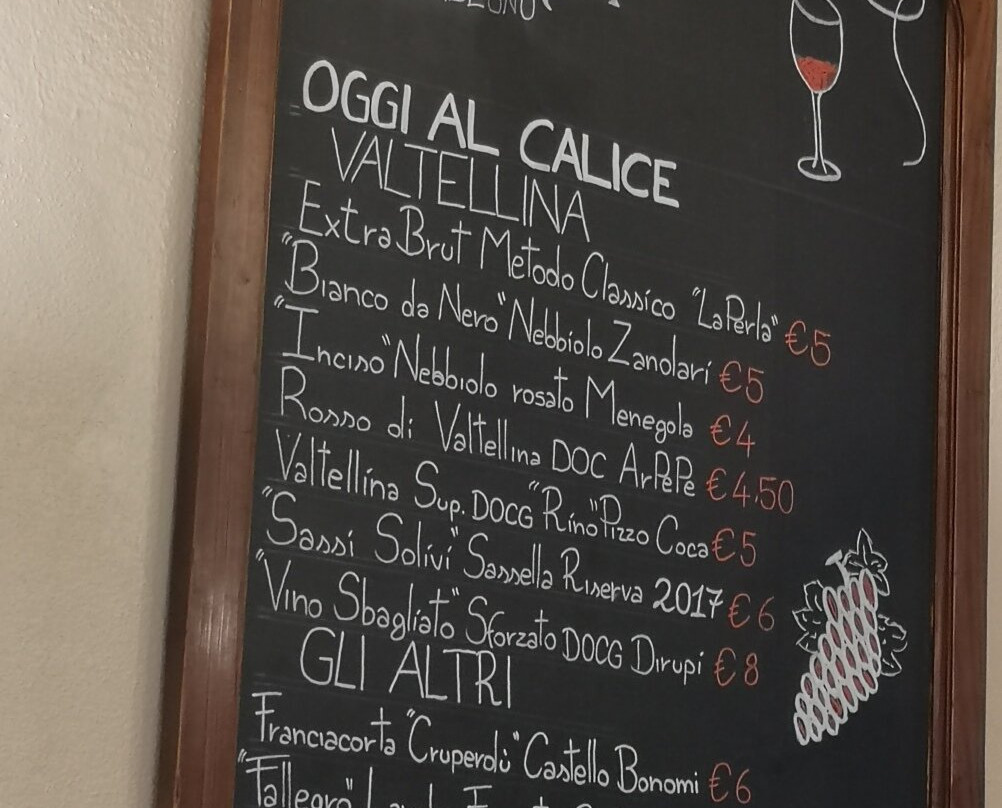 OGGI AL CALICE
VALTELLINA
Extra Brut Metodo Classico "La Perla" €5
"Bianco da Nero" Nebbiolo Zanolari €5
"Inciso" Nebbiolo rosato Menegola €4
Rosso di Valtellina DOC ArPePe €4,50
Valtellina Sup. DOCG "Rino" Pizzo Coca €5
"Sassi Solivi" Sassella Riserva 2017 €6
"Vino Sbagliato" Sforzato DOCG Dirupi €8
GLI ALTRI
Franciacorta "Cruperdù" Castello Bonomi €6